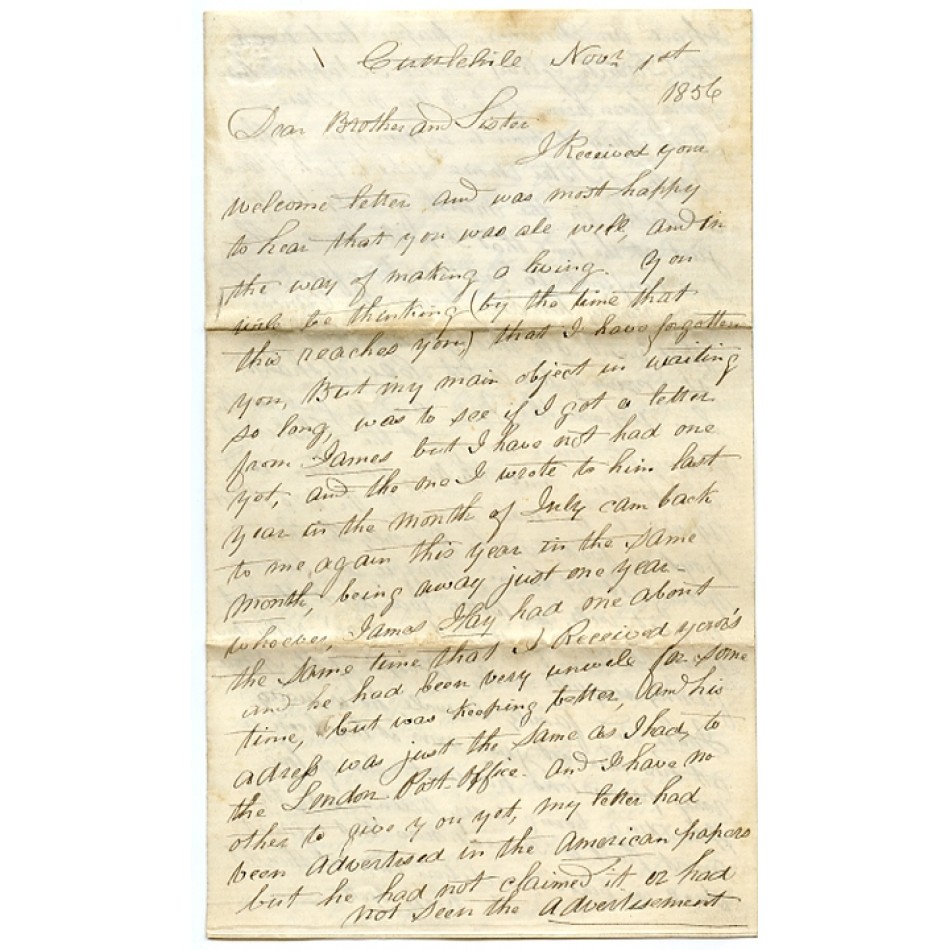 Cuttlehile Novr 1st
1856
Dear Brother and Sister
I Received your
welcome letter and was most happy
to hear that you was all well, and in
the way of making a living. You
will be thinking (by the time that
this reaches you,) that I have forgotten
you, But my main object in waiting
so long, was to see if I got a letter
from James but I have not had one
yet, and the one I wrote to him last
year in the month of July cam back
to me again this year in the same
month, being away just one year -
whoever, James Hay had one about
the same time that I Received your's
and he had been very unwell for some
time, but was keeping better, and his
adress was just the same as I had, to
the London Post Office. and I have no
other to give you yet, my letter had
been Advertised in the American papers
but he had not claimed it or had
not seen the Advertisement